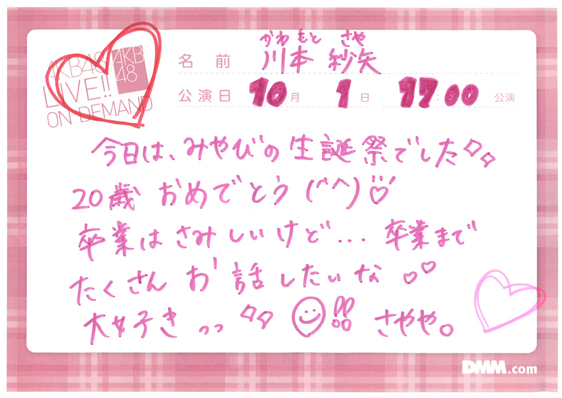 かわもと さや
AKB48 AKB48
LIVE!!
ON DEMAND
名前 川本 紗矢
公演日 10月 1日 17:00 公演
今日は、みやびの生誕祭でした
20歳 おめでとう (^^)
卒業はさみしいけど... 卒業まで
たくさん お話したいな
大好きっっ !! さやや。
DMM.com